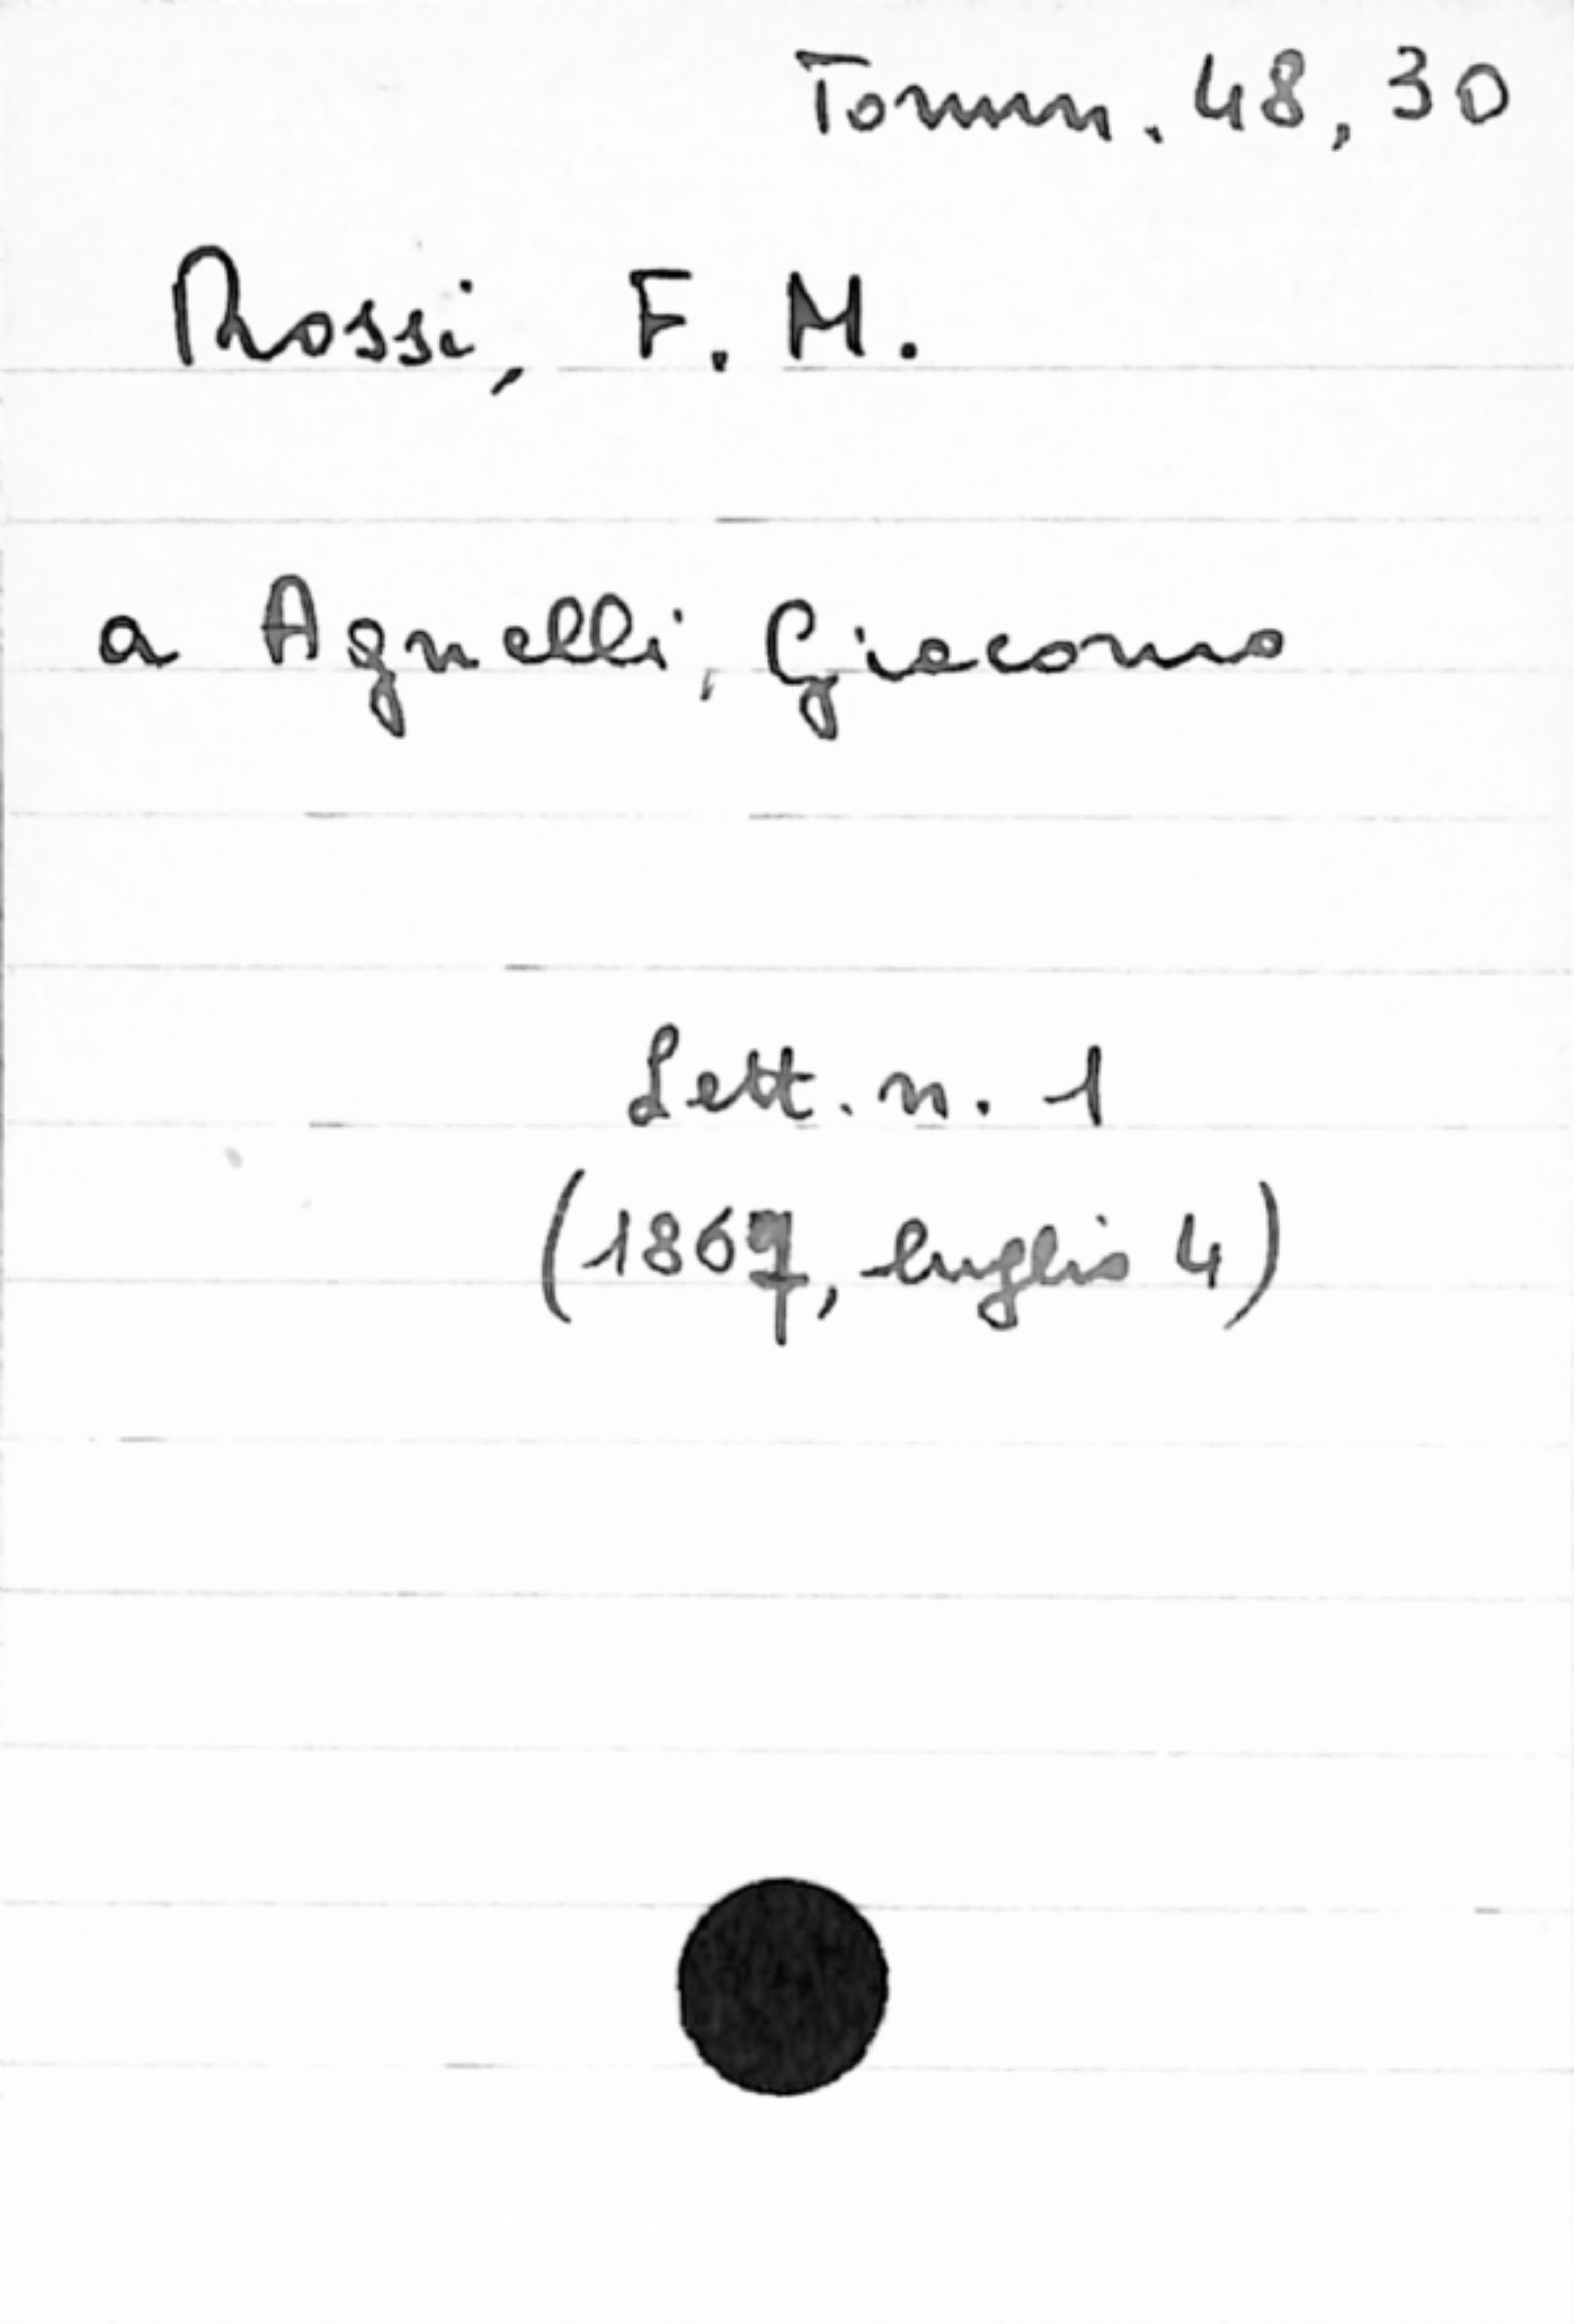 Tomm. 48, 30
Rossi, F. M.
a Agnelli, Giacomo
Lett. n. 1
(1867, luglio 4)